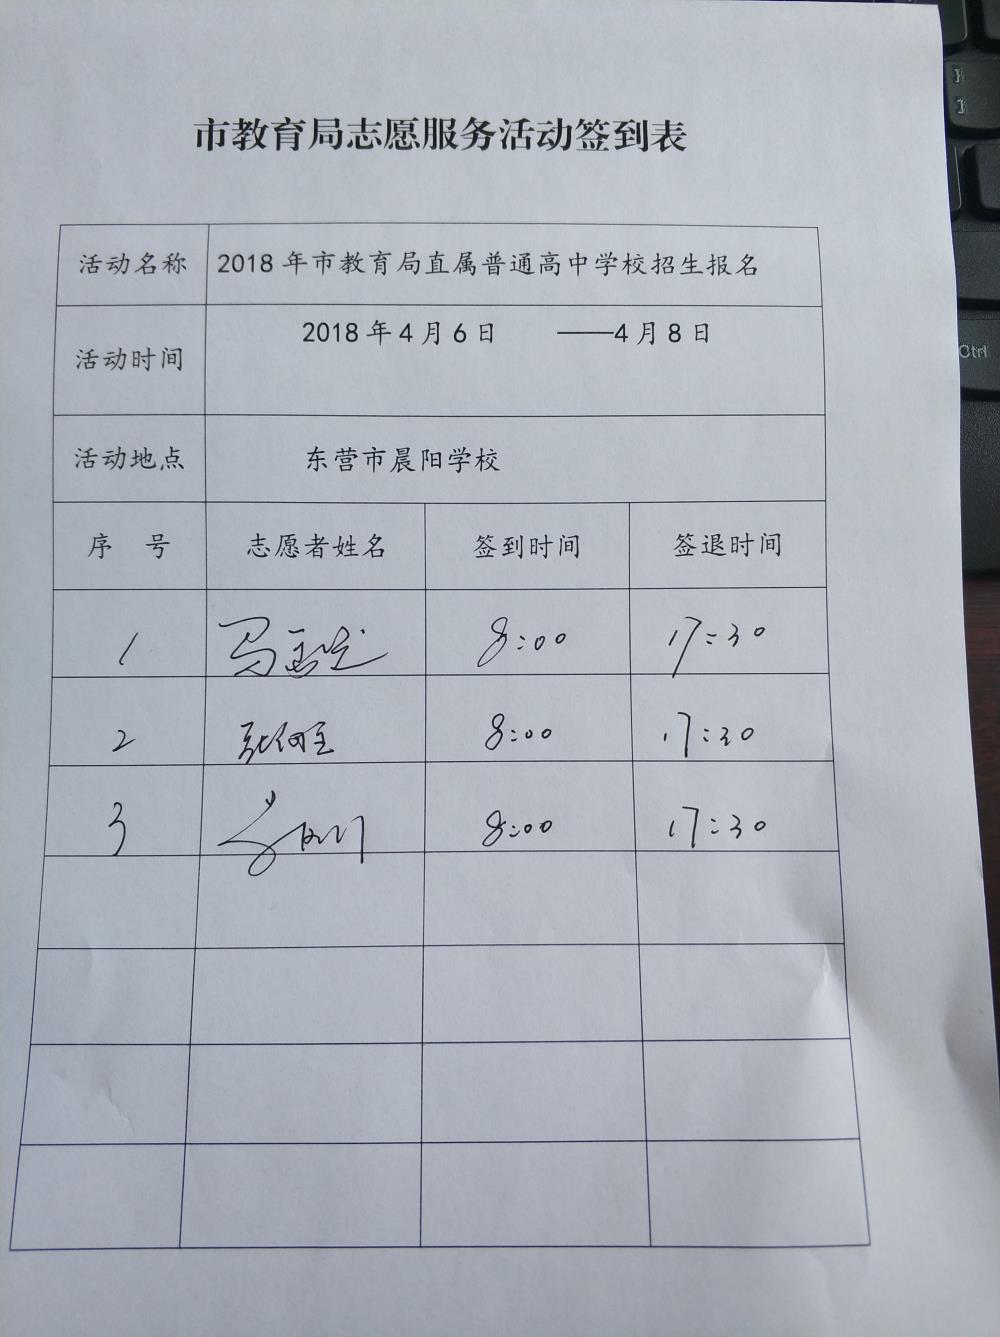 市教育局志愿服务活动签到表
活动名称 2018年市教育局直属普通高中学校招生报名
活动时间 2018年4月6日 ——4月8日
活动地点 东营市晨阳学校
序 号 志愿者姓名 签到时间 签退时间
1 马 8:00 17:30
2 张 8:00 17:30
3 8:00 17:30
Ctrl